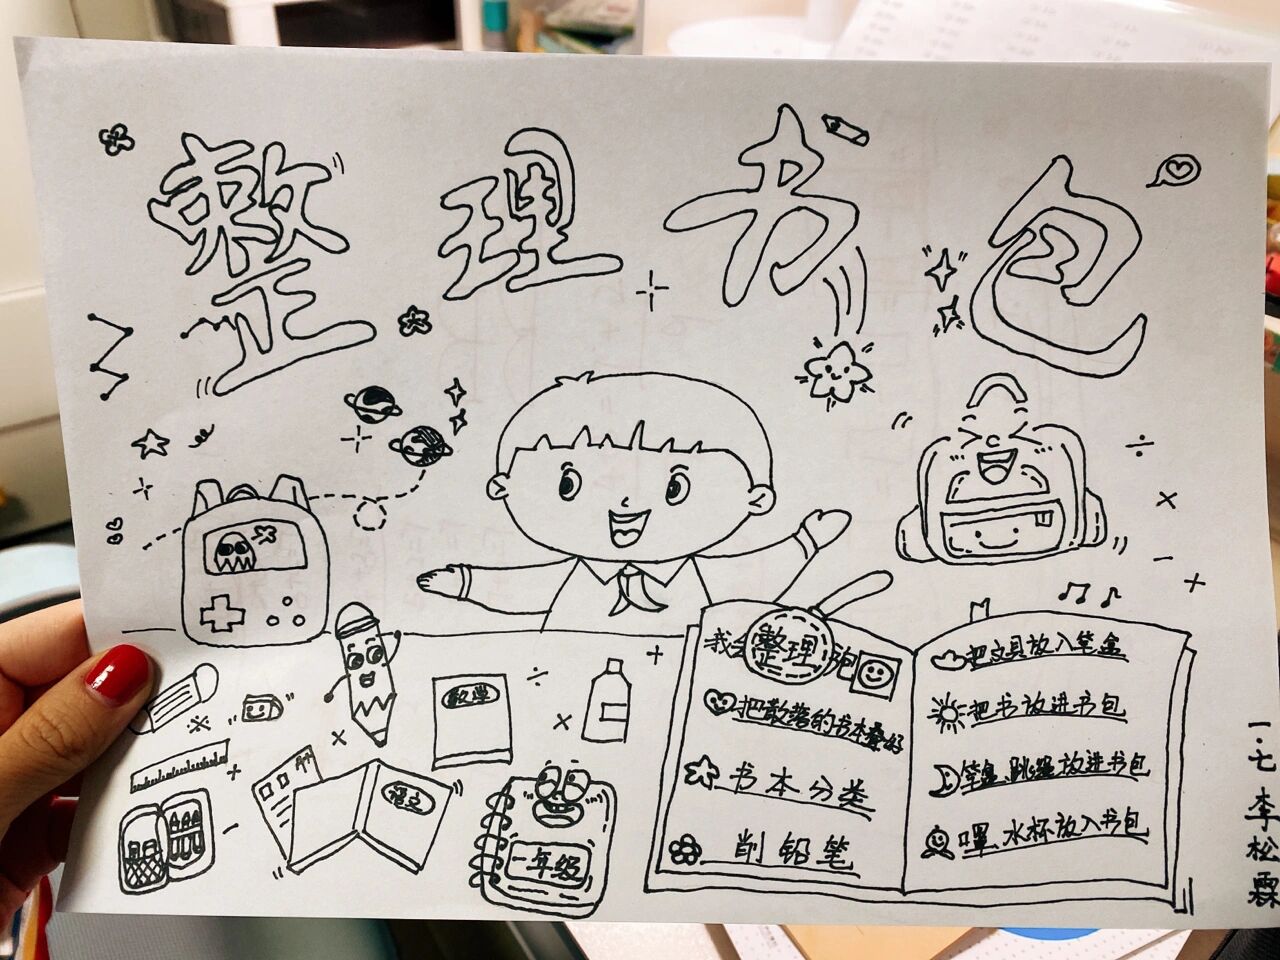 整理书包
我会整理
把散落的书本叠好
书本分类
削铅笔
把文具放入笔盒
把书放进书包
笔盒、跳绳放进书包
口罩、水杯放入书包
数学
语文
A+
一年级
一.七 李松霖